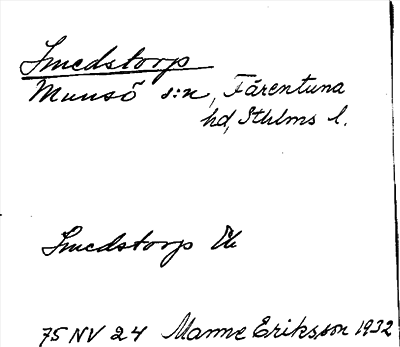 Smedstorp
Munsö s:n, Färentuna
hd, Sthlms l.
Smedstorp
75 NV 24 Manne Eriksson 1932